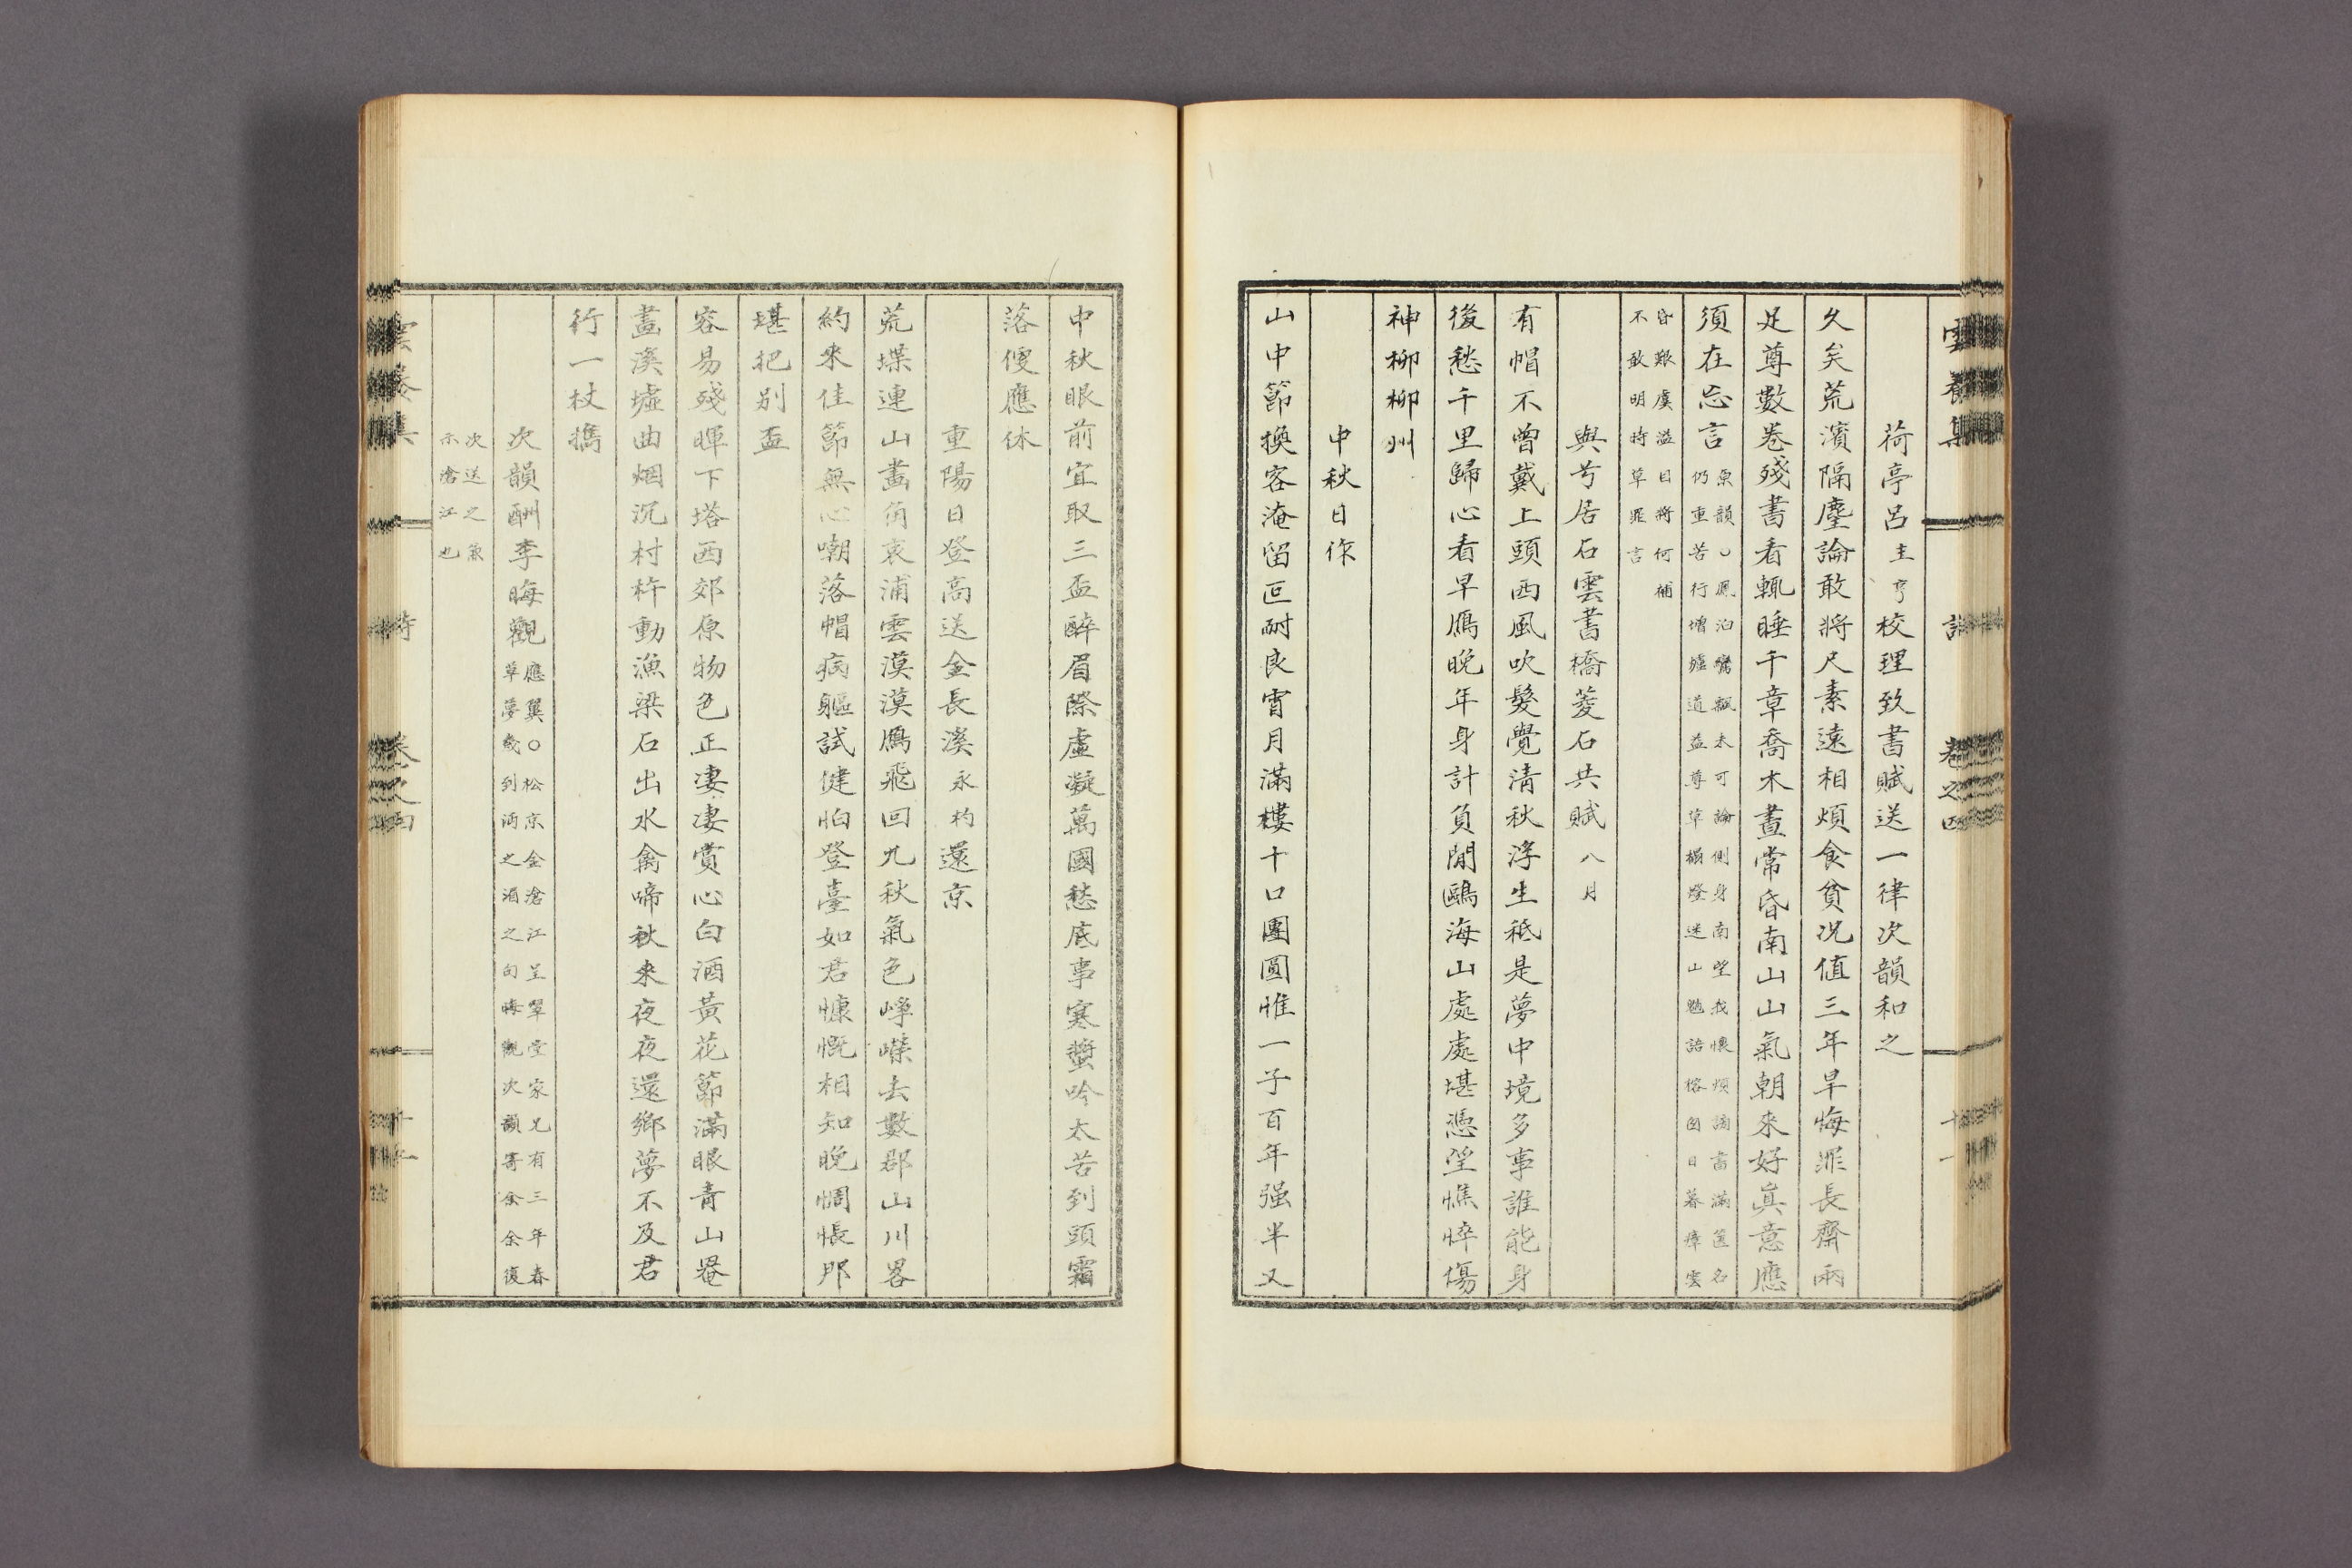 雲養集 詩 卷之四 十一
荷亭呂圭亨校理致書賦送一律次韻和之
久矣荒濱隔塵論敢將尺素遠相煩食貧况值三年旱悔罪長齋兩
足尊數卷殘書看輒睡千章喬木晝常昏南山山氣朝來好眞意應
須在忘言原韻○鳳泊鸞飄未可論側身南望我懷煩謫書滿篋名
仍重苦行增墟道益尊草榻燈迷山魈語榕囱日暮瘴雲
昏艱虞溢目將何補
不敢明時草罪言
與芍居石雲書橋菱石共賦八月
有帽不曾戴上頭西風吹髮覺淸秋浮生秪是夢中境多事誰能身
後愁千里歸心看早鴈晩年身計負閒鷗海山處處堪憑望憔悴傷
神柳柳州
中秋日作
山中節換客淹留叵耐良宵月滿樓十口團圓惟一子百年强半又
中秋眼前宜取三盃醉眉際虛凝萬國愁底事寒螿吟太苦到頭霜
落便應休
重陽日登高送金長溪永杓還京
荒堞連山畵角哀浦雲漠漠鴈飛回九秋氣色崢嶸去數郡山川畧
約來佳節無心嘲落帽病軀試健怕登臺如君慷慨相知晩惆悵那
堪把別盃
容易殘暉下塔西郊原物色正凄凄賞心白酒黃花節滿眼靑山罨
畫溪墟曲烟沉村杵動漁梁石出水禽啼秋來夜夜還鄕夢不及君
行一杖擕
次韻酬李晦觀應翼○松京金滄江呈翠堂家兄有三年春
草夢幾到沔之湄之句晦觀次韻寄余余復
次送之兼
示滄江也
雲養集 詩 卷之四